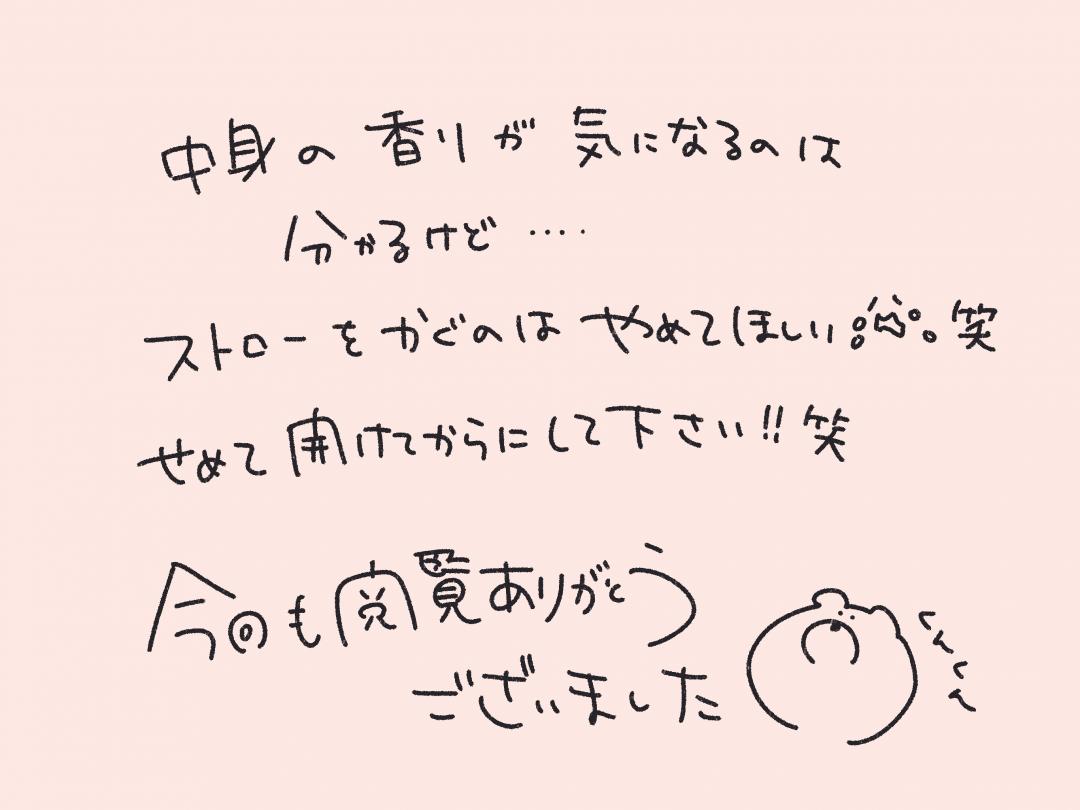 中身の香りが気になるのは
分かるけど‥‥
ストローをかぐのはやめてほしい笑
せめて開けてからにして下さい!!笑
今回も閲覧ありがとう
ございました
くんくん